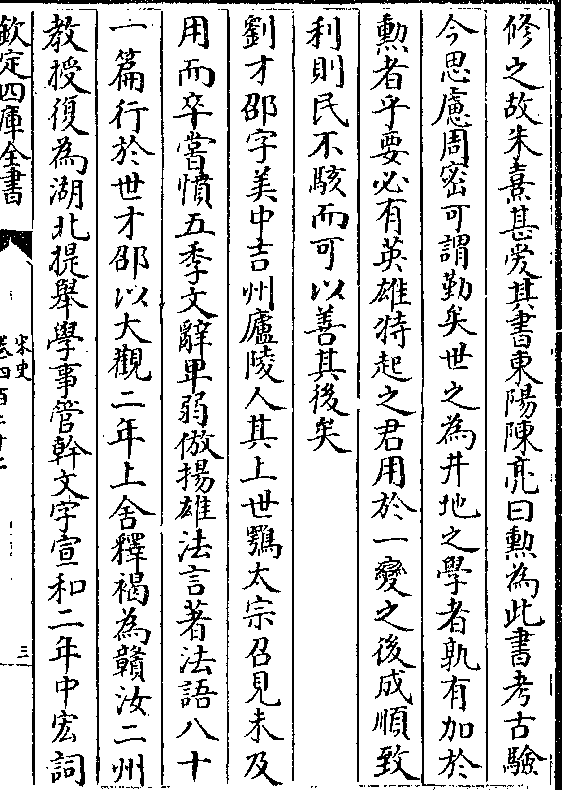 修之故朱熹甚愛其書東陽陳亮曰勲為此書考古驗
今思慮周密可謂勤矣世之為井地之學者孰有加於
勲者乎要必有英雄特起之君用於一變之後成順致
利則民不駭而可以善其後矣
劉才邵字美中吉州廬陵人其上世鶚太宗召見未及
用而卒嘗憤五季文辭卑弱倣揚雄法言著法語八十
一篇行於世才邵以大觀二年上舍釋褐為贛汝二州
教授復為湖北提舉學事管幹文字宣和二年中宏詞
欽定四庫全書
宋史
卷四百二十二
三